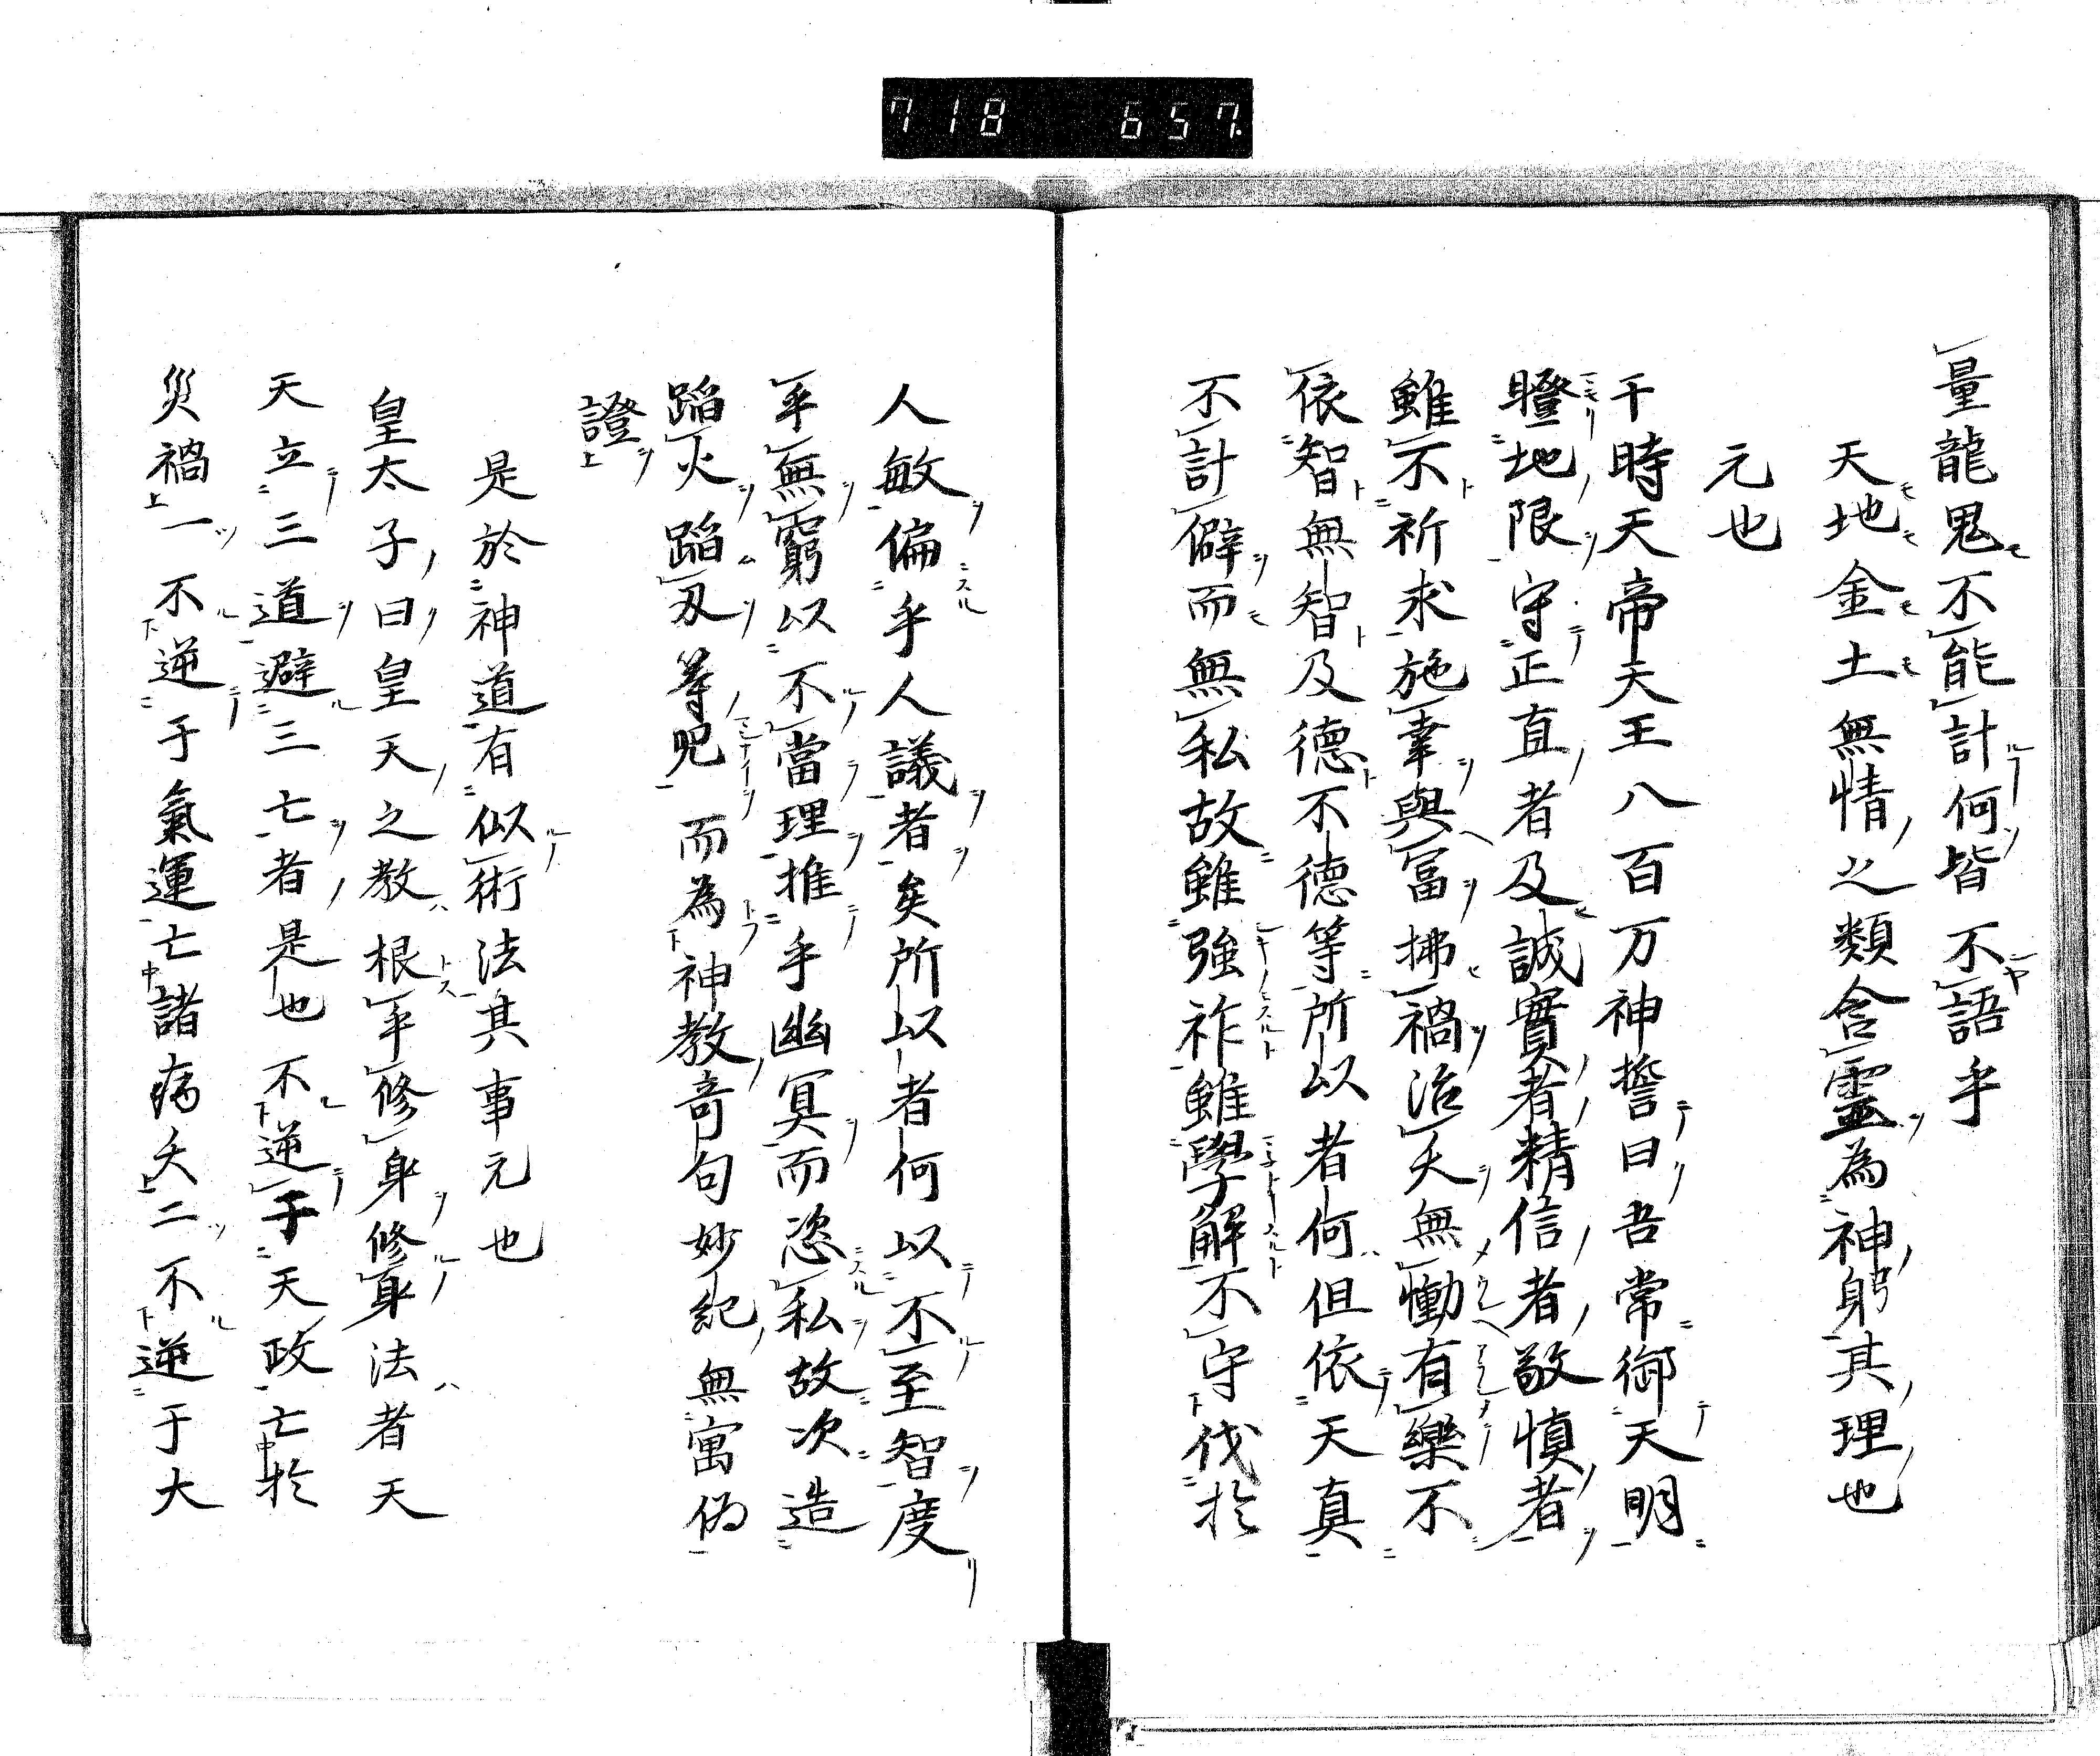 718 657
量龍鬼不能計何皆不語乎
天地金土無情之類含靈為神躬其理也
元也
于時天帝天王八百万神誓曰吾常御天明
瞪地限守正直者及誠實者精信者敬慎者
雖不祈求施幸與冨拂禍治夭無慟有樂不
依智無智及德不德等所以者何但依天真
不計僻而無私故雖強祚雖學解不守伐於
人敏偏乎人議者矣所以者何以不至智度
乎無窮以不當理推乎幽冥而恣私故次造
蹈火蹈刃等咒而為神教奇句妙紀無寓偽
證
是於神道有似術法其事元也
皇太子曰皇天之教根乎修身修身法者天
天立三道避三亡者是也不逆于天政亡於
災禍一不逆于氣運亡諸病夭二不逆于大